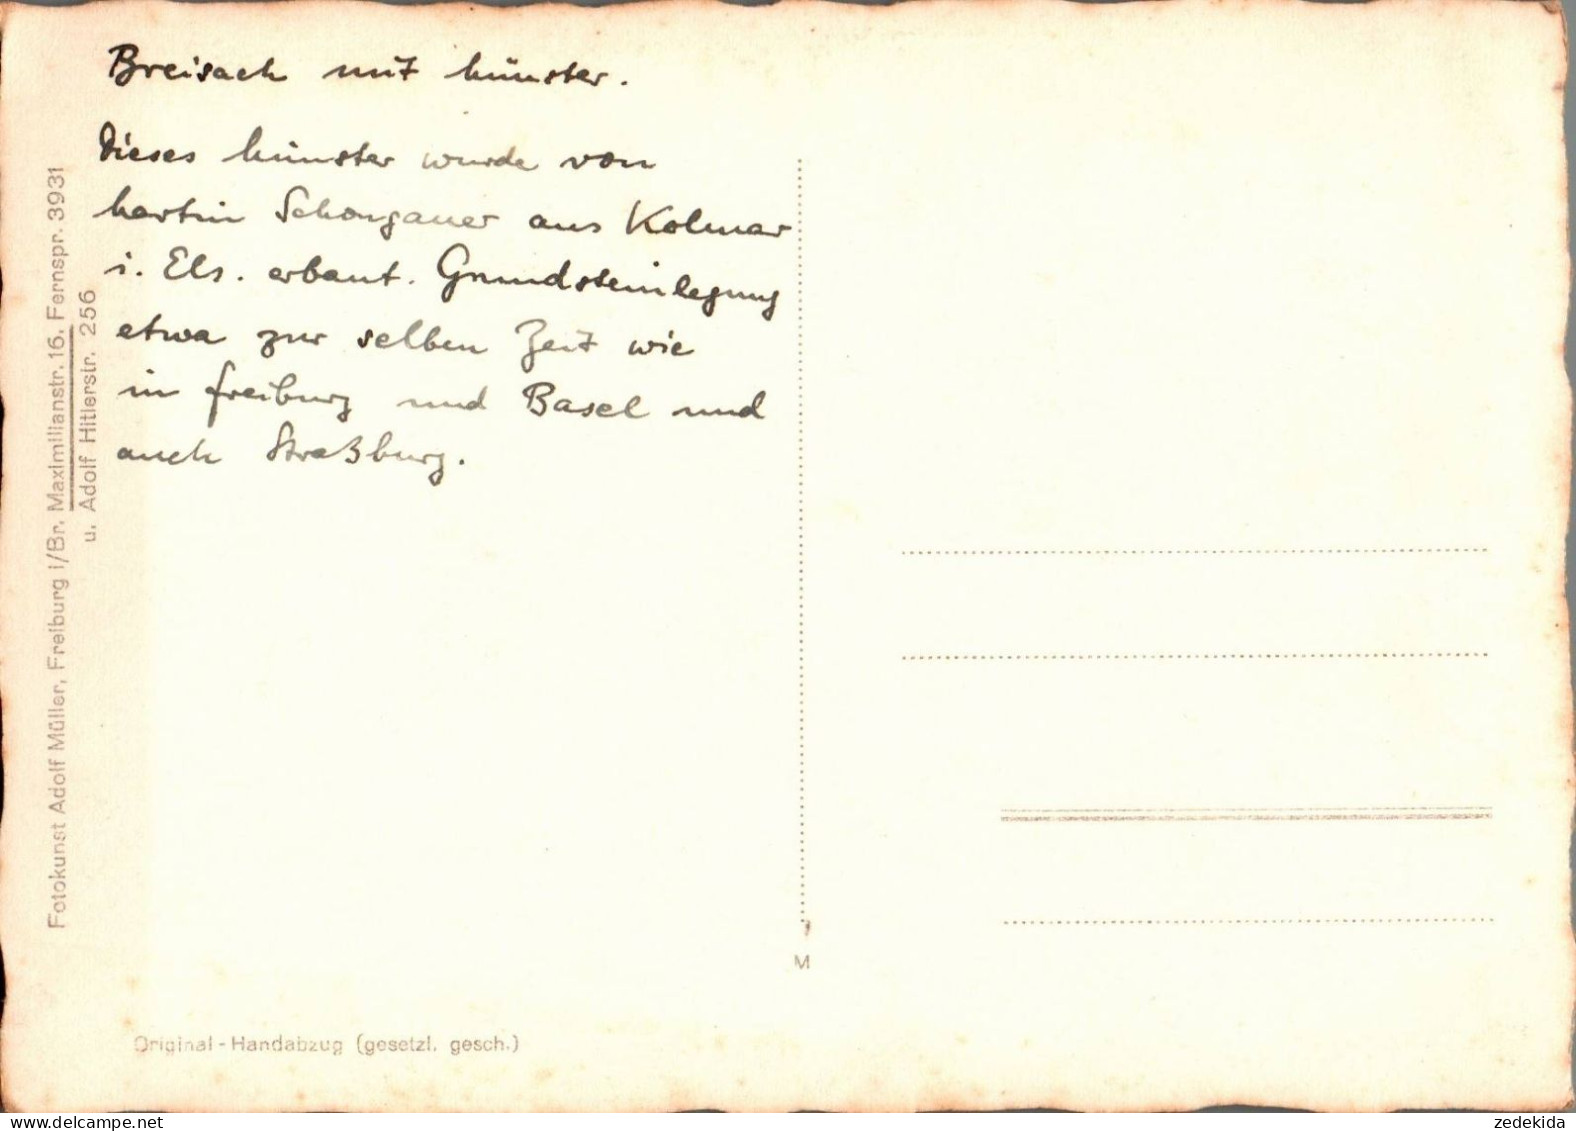 Breisach mit Münster.
Dieses Münster wurde von
Martin Schongauer aus Kolmar
i. Els. erbaut. Grundsteinlegung
etwa zur selben Zeit wie
in Freiburg und Basel und
auch Straßburg.
Fotokunst Adolf Müller, Freiburg i/Br. Maximilianstr. 16. Fernspr. 3931
u. Adolf Hitlerstr. 256
M
Original-Handabzug (gesetzl. gesch.)
www.delcampe.net
zedekida